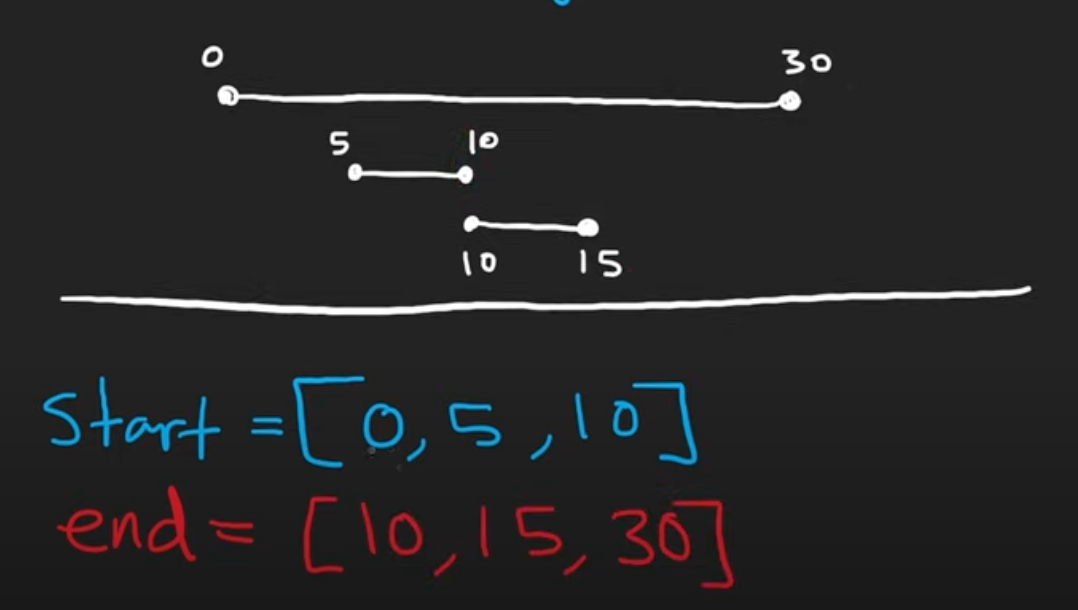 0 30
5 10
10 15
Start = [0, 5, 10]
end = [10, 15, 30]